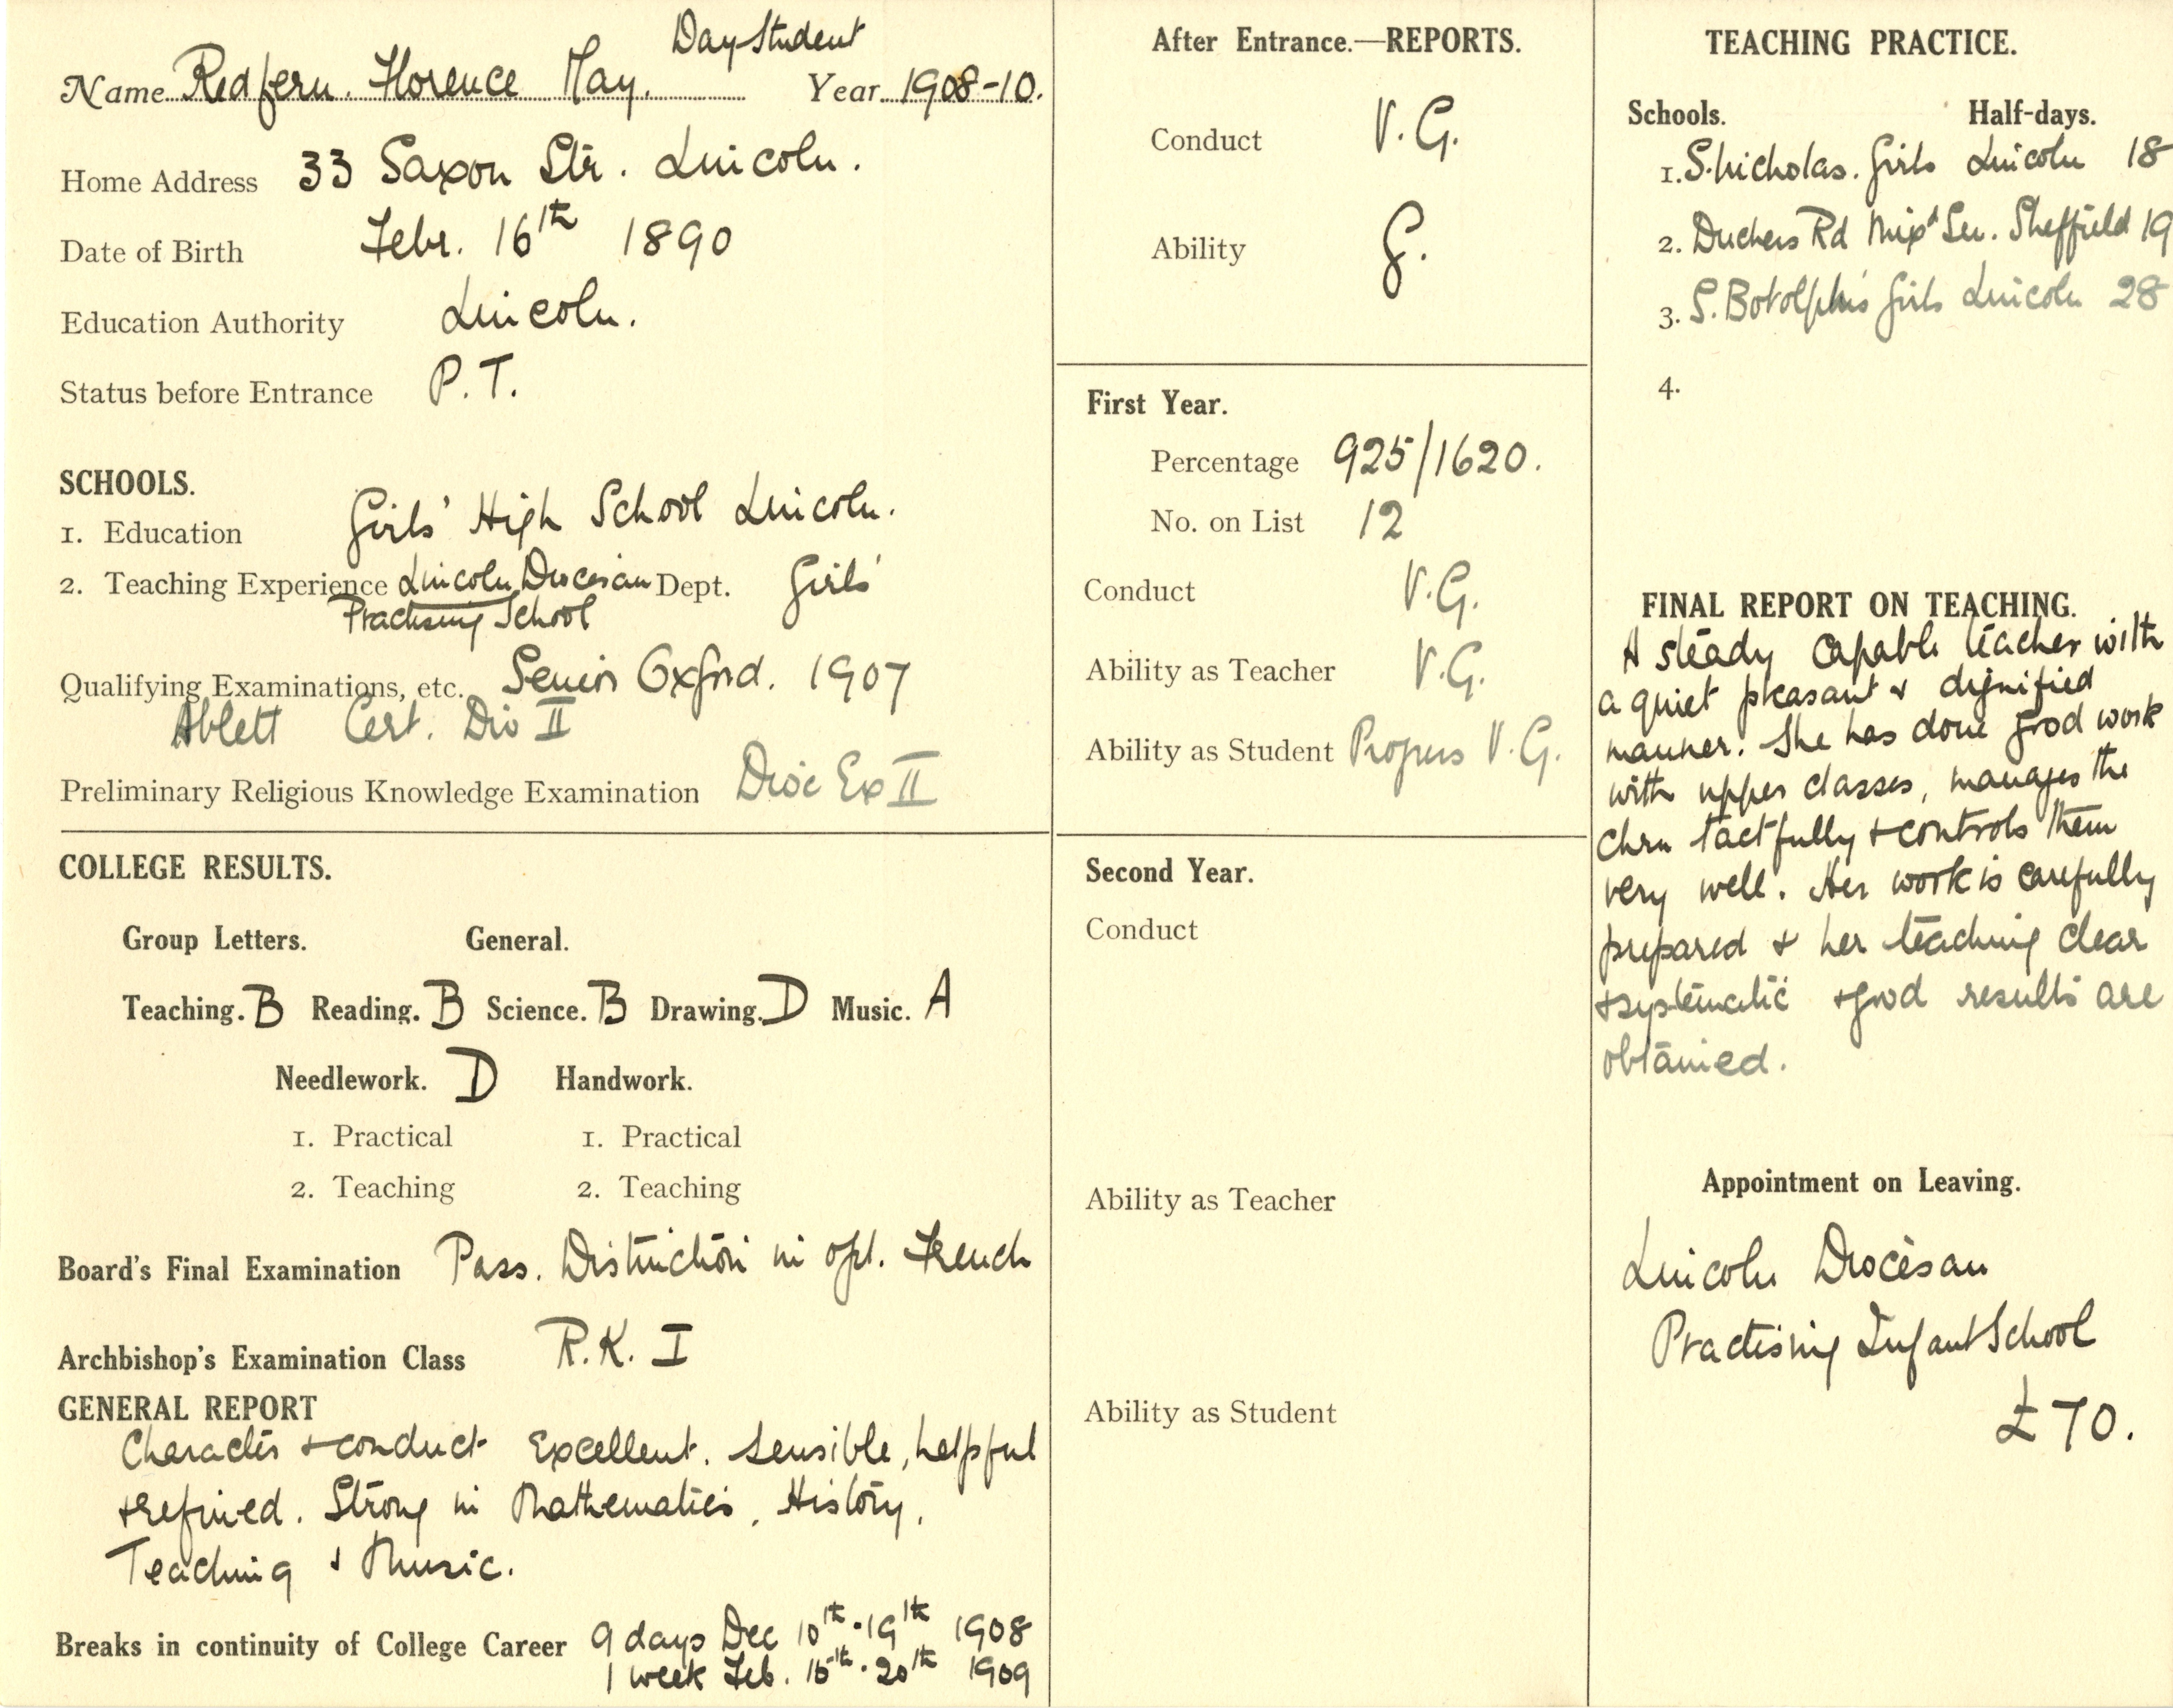 Day Student
Name Redfern. Florence May. Year 1908-10.
Home Address 33 Saxon Str. Lincoln.
Date of Birth Febr. 16th 1890
Education Authority Lincoln.
Status before Entrance P.T.
SCHOOLS.
1. Education Girls' High School Lincoln.
2. Teaching Experience Lincoln Diocesan Dept. Girls'
Practising School
Qualifying Examinations, etc. Senior Oxford. 1907
Ablett Cert. Div II
Preliminary Religious Knowledge Examination Dioc Ex II
COLLEGE RESULTS.
Group Letters. General.
Teaching. B Reading. B Science. B Drawing. D Music. A
Needlework. D Handwork.
1. Practical 1. Practical
2. Teaching 2. Teaching
Board's Final Examination Pass. Distinction in opl. French
Archbishop's Examination Class R.K. I
GENERAL REPORT
Character + conduct Excellent. Sensible, helpful
+ refined. Strong in Mathematics, History,
Teaching + Music.
Breaks in continuity of College Career 9 days Dec 10th - 19th 1908
1 week Feb. 15th - 20th 1909
After Entrance.—REPORTS.
Conduct V.G.
Ability G.
First Year.
Percentage 925/1620.
No. on List 12
Conduct V.G.
Ability as Teacher V.G.
Ability as Student Progress V.G.
Second Year.
Conduct
Ability as Teacher
Ability as Student
TEACHING PRACTICE.
Schools. Half-days.
1. S. Nicholas. Girls Lincoln 18
2. Duchess Rd Mixd Sen. Sheffield 19
3. S. Botolph's Girls Lincoln 28
4.
FINAL REPORT ON TEACHING.
A steady capable teacher with
a quiet pleasant + dignified
manner. She has done good work
with upper classes, manages the
chn tactfully + controls them
very well. Her work is carefully
prepared + her teaching clear
+ systematic + good results are
obtained.
Appointment on Leaving.
Lincoln Diocesan
Practising Infant School
£70.